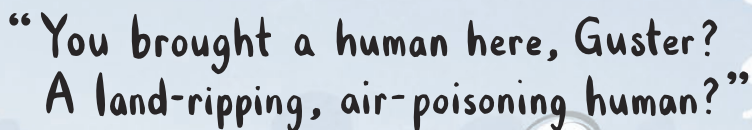 “You brought a human here, Guster?
A land-ripping, air-poisoning human?”